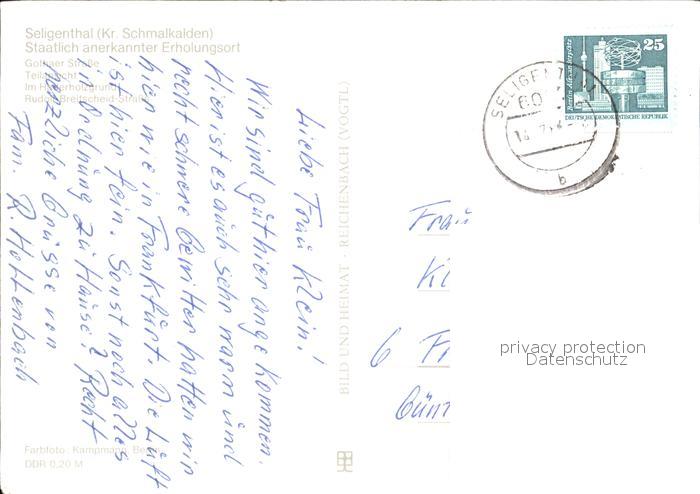 Seligenthal (Kr. Schmalkalden)
Staatlich anerkannter Erholungsort
Gothaer Straße
Teilansicht
Im Haderholzgrund
Rudolf-Breitscheid-Straße
Liebe Frau Klein!
Wir sind gut hier angekommen.
Hier ist es auch sehr warm und
recht schwere Gewitter hatten wir
hier wie in Frankfurt. Die Luft
ist hier fein. Sonst noch alles
in Ordnung zu Hause? Recht
herzliche Grüsse von
Fam. R. Hottenbach
Farbfoto: Kampmann, Berlin
DDR 0,20 M
BILD UND HEIMAT · REICHENBACH (VOGTL)
SELIGENTHAL
60
b
25
Berlin, Alexanderplatz
DEUTSCHE DEMOKRATISCHE REPUBLIK
Frau
Kl
6 Fr
Gün
privacy protection
Datenschutz